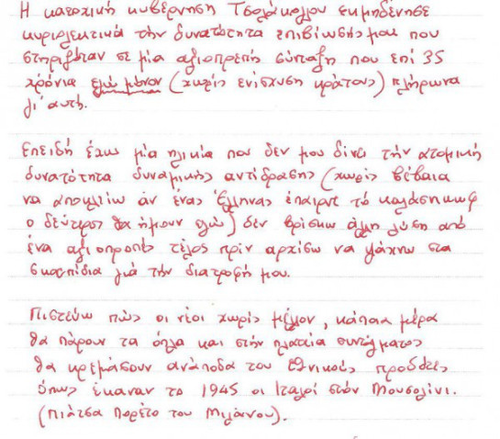 Η κατοχική κυβέρνηση Τσολάκογλου εκμηδένησε
κυριολεκτικά την δυνατότητα επιβίωσής μου που
στηριζόταν σε μία αξιοπρεπή σύνταξη που επί 35
χρόνια εγώ μόνον (χωρίς ενίσχυση κράτους) πλήρωνα
γι' αυτή.
Επειδή έχω μία ηλικία που δεν μου δίνει την ατομική
δυνατότητα δυναμικής αντίδρασης (χωρίς βέβαια
να αποκλείω αν ένας Έλληνας έπαιρνε το καλάσνικωφ
ο δεύτερος θα ήμουν εγώ) δεν βρίσκω άλλη λύση από
ένα αξιοπρεπές τέλος πριν αρχίσω να ψάχνω στα
σκουπίδια για την διατροφή μου.
Πιστεύω πως οι νέοι χωρίς μέλλον, κάποια μέρα
θα πάρουν τα όπλα και στην πλατεία συντάγματος
θα κρεμάσουν ανάποδα τους εθνικούς προδότες
όπως έκαναν το 1945 οι Ιταλοί στον Μουσολίνι.
(Πιάτσα Πορέτο του Μιλάνου).